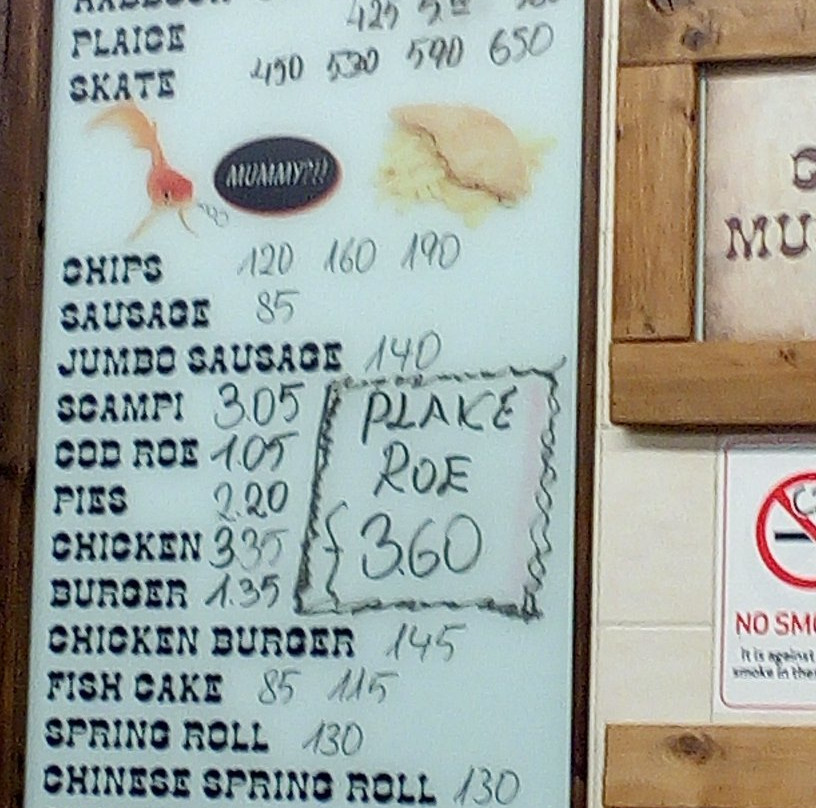 HADDOCK 425
PLAICE
SKATE 490 530 590 650
MUMMY?!!
CHIPS 120 160 190
SAUSAGE 85
JUMBO SAUSAGE 140
SCAMPI 3.05
COD ROE 1.05
PIES 2.20
CHICKEN 335
BURGER 1.35
PLAKE
ROE
£3.60
CHICKEN BURGER 145
FISH CAKE 85 115
SPRING ROLL 130
CHINESE SPRING ROLL 130
MU
NO SMO
It is against
smoke in thes